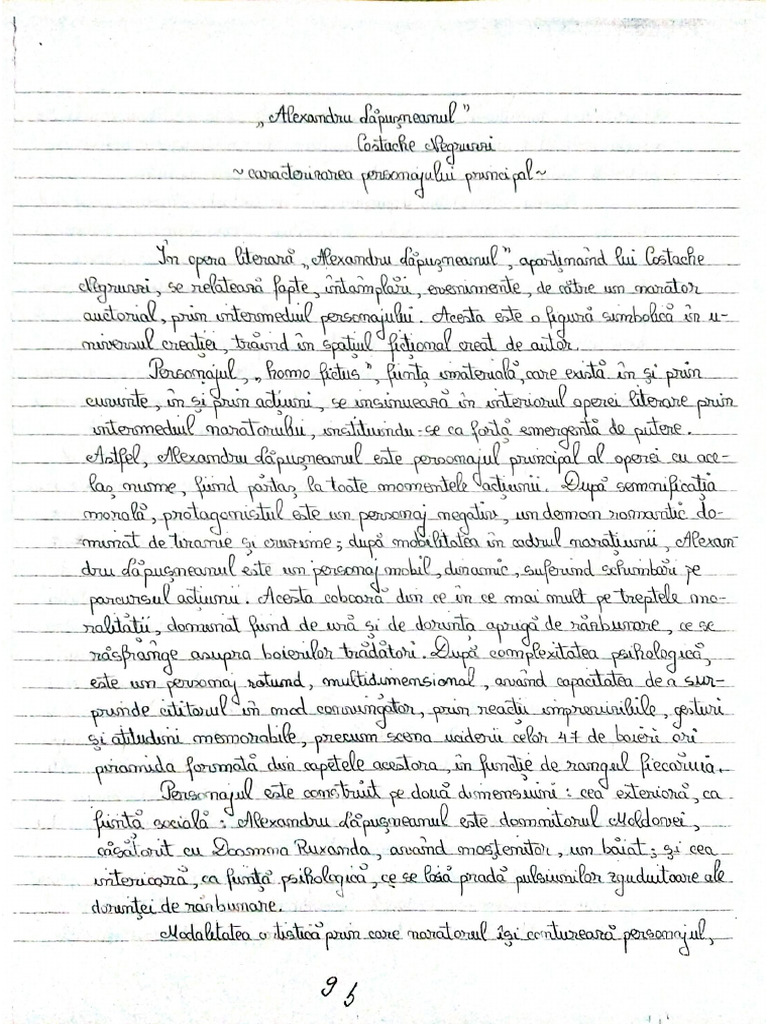 „Alexandru Lăpușneanul”
Costache Negruzzi
~caracterizarea personajului principal~
În opera literară „Alexandru Lăpușneanul”, aparținând lui Costache
Negruzzi, se relatează fapte, întâmplări, evenimente, de către un narator
auctorial, prin intermediul personajului. Acesta este o figură simbolică în u-
niversul creației, trăind în spațiul ficțional creat de autor.
Personajul, „homo fictus”, ființă imaterială, care există în și prin
cuvinte, în și prin acțiuni, se insinuează în interiorul operei literare prin
intermediul naratorului, instituindu-se ca forță emergentă de putere.
Astfel, Alexandru Lăpușneanul este personajul principal al operei cu ace-
laș nume, fiind părtaș la toate momentele acțiunii. După semnificația
morală, protagonistul este un personaj negativ, un demon romantic do-
minat de tiranie și cruzime; după mobilitatea în cadrul narațiunii, Alexan-
dru Lăpușneanul este un personaj mobil, dinamic, suferind schimbări pe
parcursul acțiunii. Acesta coboară din ce în ce mai mult pe treptele mo-
ralității, dominat fiind de ură și de dorința aprigă de răzbunare, ce se
răsfrânge asupra boierilor trădători. După complexitatea psihologică,
este un personaj rotund, multidimensional, având capacitatea de a sur-
prinde cititorul în mod convingător, prin reacții imprevizibile, gesturi
și atitudini memorabile, precum scena uciderii celor 47 de boieri ori
piramida formată din capetele acestora, în funcție de rangul fiecăruia.
Personajul este construit pe două dimensiuni: cea exterioră, ca
ființă socială: Alexandru Lăpușneanul este domnitorul Moldovei,
căsătorit cu Doamna Ruxanda, având moștenitor, un băiat; și cea
interioară, ca ființă psihologică, ce se lasă pradă pulsiunilor zguduitoare ale
dorinței de răzbunare.
Modalitatea artistică prin care naratorul își conturează personajul,
95